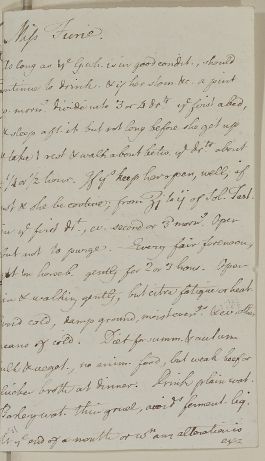 Miss Turie.
so long as ye Guh. is in good condit., should
continue to drink, & if her stom. &c. a pint
morng. Divide into 3 or 4 drts. ye first abed,
& sleep aft. it but not long before she get up
take ye rest & walk about betw. ye drts. about
1/4 or 1/2 hour. If ys keep her open, well, if
not & she be costive, from ʒj to ij of Sol. Tart.
in ye first dt., ev. second or 3d morng. Open
but not to purge. Every fair forenoon,
out on horseb. gently for 2 or 3 hours. Open
air & walking gently, but citra fatigue or heat.
void cold, damp ground, moist even.s, & ev. other
means of cold. Diet for summ. & autumn
milk & veget., no anim. food, but weak beef or
chicken broth at dinner. Drink plain wat.
Barley wat. thin gruel, avoidg ferment. liq.
ye end of a month or wn any alteration is